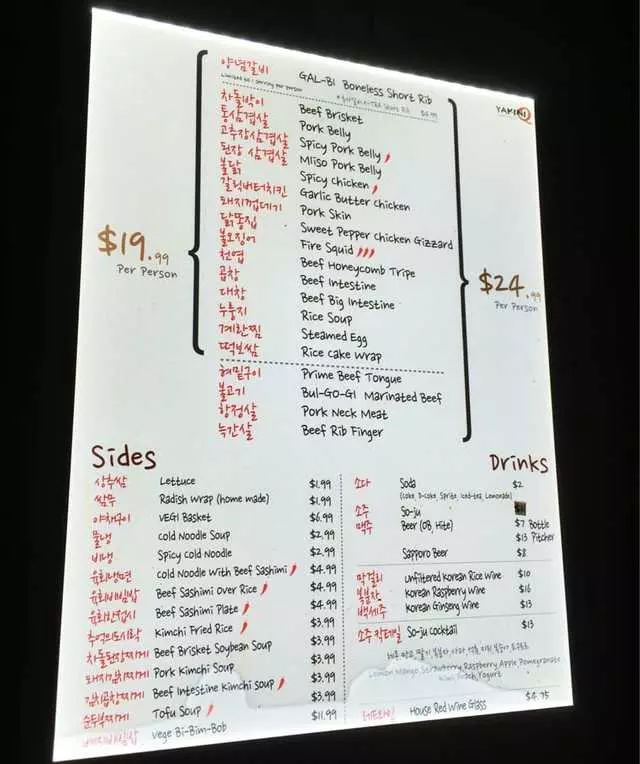 양념갈비 GAL-BI Boneless Short Rib
YAKINIQ
차돌박이 Beef Brisket
통삼겹살 Pork Belly
고추장삼겹살 Spicy Pork Belly
된장 삼겹살 Miso Pork Belly
불닭 Spicy Chicken
갈릭버터치킨 Garlic Butter Chicken
돼지껍데기 Pork Skin
닭똥집 Sweet Pepper Chicken Gizzard
불오징어 Fire Squid
천엽 Beef Honeycomb Tripe
곱창 Beef Intestine
대창 Beef Big Intestine
누룽지 Rice Soup
계란찜 Steamed Egg
떡보쌈 Rice Cake Wrap
$19.99
Per Person
혀밑구이 Prime Beef Tongue
불고기 BUL-GO-GI Marinated Beef
항정살 Pork Neck Meat
늑간살 Beef Rib Finger
$24.99
Per Person
Sides
상추쌈 Lettuce $1.99
쌈무 Radish Wrap (home made) $1.99
야채구이 VEGI Basket $6.99
물냉 Cold Noodle Soup $2.99
비냉 Spicy Cold Noodle $2.99
육회냉면 Cold Noodle With Beef Sashimi $4.99
육회비빔밥 Beef Sashimi Over Rice $4.99
육회한접시 Beef Sashimi Plate $4.99
추억의도시락 Kimchi Fried Rice $3.99
차돌된장찌개 Beef Brisket Soybean Soup $3.99
돼지김치찌개 Pork Kimchi Soup $3.99
김치곱창찌개 Beef Intestine Kimchi Soup $3.99
순두부찌개 Tofu Soup $3.99
Vege Bi-Bim-Bob $11.99
Drinks
소다 Soda $2
(Coke, D-Coke, Sprite, Iced-tea, Lemonade)
소주 So-ju
맥주 Beer (OB, Hite) $7 Bottle
$13 Pitcher
Sapporo Beer $8
막걸리 Unfiltered Korean Rice Wine $10
복분자 Korean Raspberry Wine $16
백세주 Korean Ginseng Wine $13
소주칵테일 So-ju Cocktail $13
Lemon Mango Strawberry Raspberry Apple Pomegranate
Kiwi Peach Yogurt
House Red Wine Glass $4.75